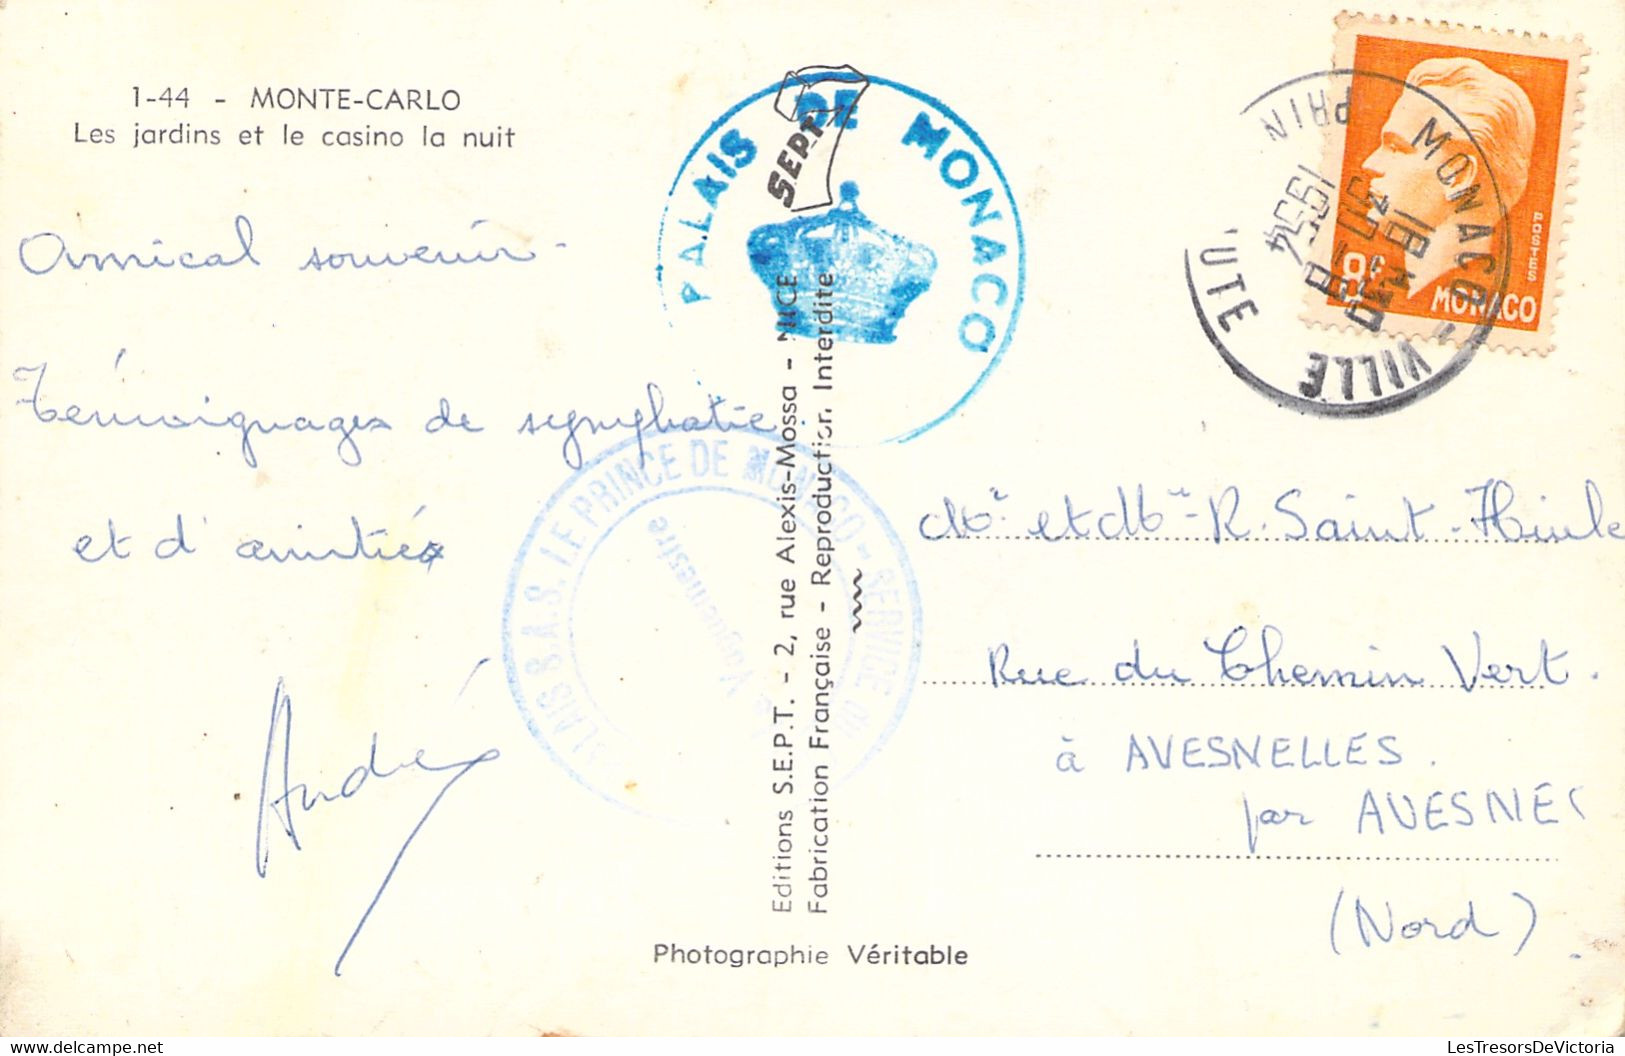 1-44 - MONTE-CARLO
Les jardins et le casino la nuit
Amical souvenir -
Témoignages de sympathie
et d'amitiés
André
PALAIS DE MONACO
SEPT
PALAIS S.A.S. LE PRINCE DE MONACO - SERVICE DU
Le Vaguemestre
Editions S.E.P.T. - 2, rue Alexis-Mossa - NICE
Fabrication Française - Reproduction Interdite
Photographie Véritable
POSTES
8F
MONACO
MONACO VILLE
PRIN UTE
1954
Mr et Mme R. Saint-
Rue du Chemin Vert.
à AVESNELLES.
par AVESNES
(Nord)
LesTresorsDeVictoria
LesTresorsDeVictoria - delcampe.net